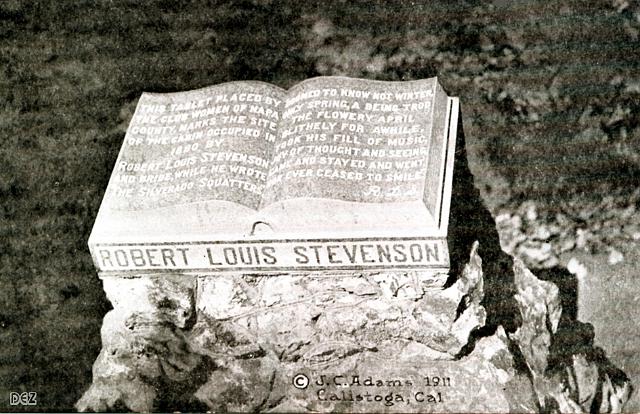 THIS TABLET PLACED BY
THE CLUB WOMEN OF NAPA
COUNTY, MARKS THE SITE
OF THE CABIN OCCUPIED IN
1880 BY
ROBERT LOUIS STEVENSON
AND BRIDE, WHILE HE WROTE
THE SILVERADO SQUATTERS.
DOOMED TO KNOW NOT WINTER,
ONLY SPRING, A BEING TROD
THE FLOWERY APRIL
BLITHELY FOR AWHILE,
TOOK HIS FILL OF MUSIC,
JOY OF THOUGHT AND SEEING,
CAME AND STAYED AND WENT,
NOR EVER CEASED TO SMILE.
R. L. S.
ROBERT LOUIS STEVENSON
© J.C. Adams 1911
Calistoga, Cal
DEZ